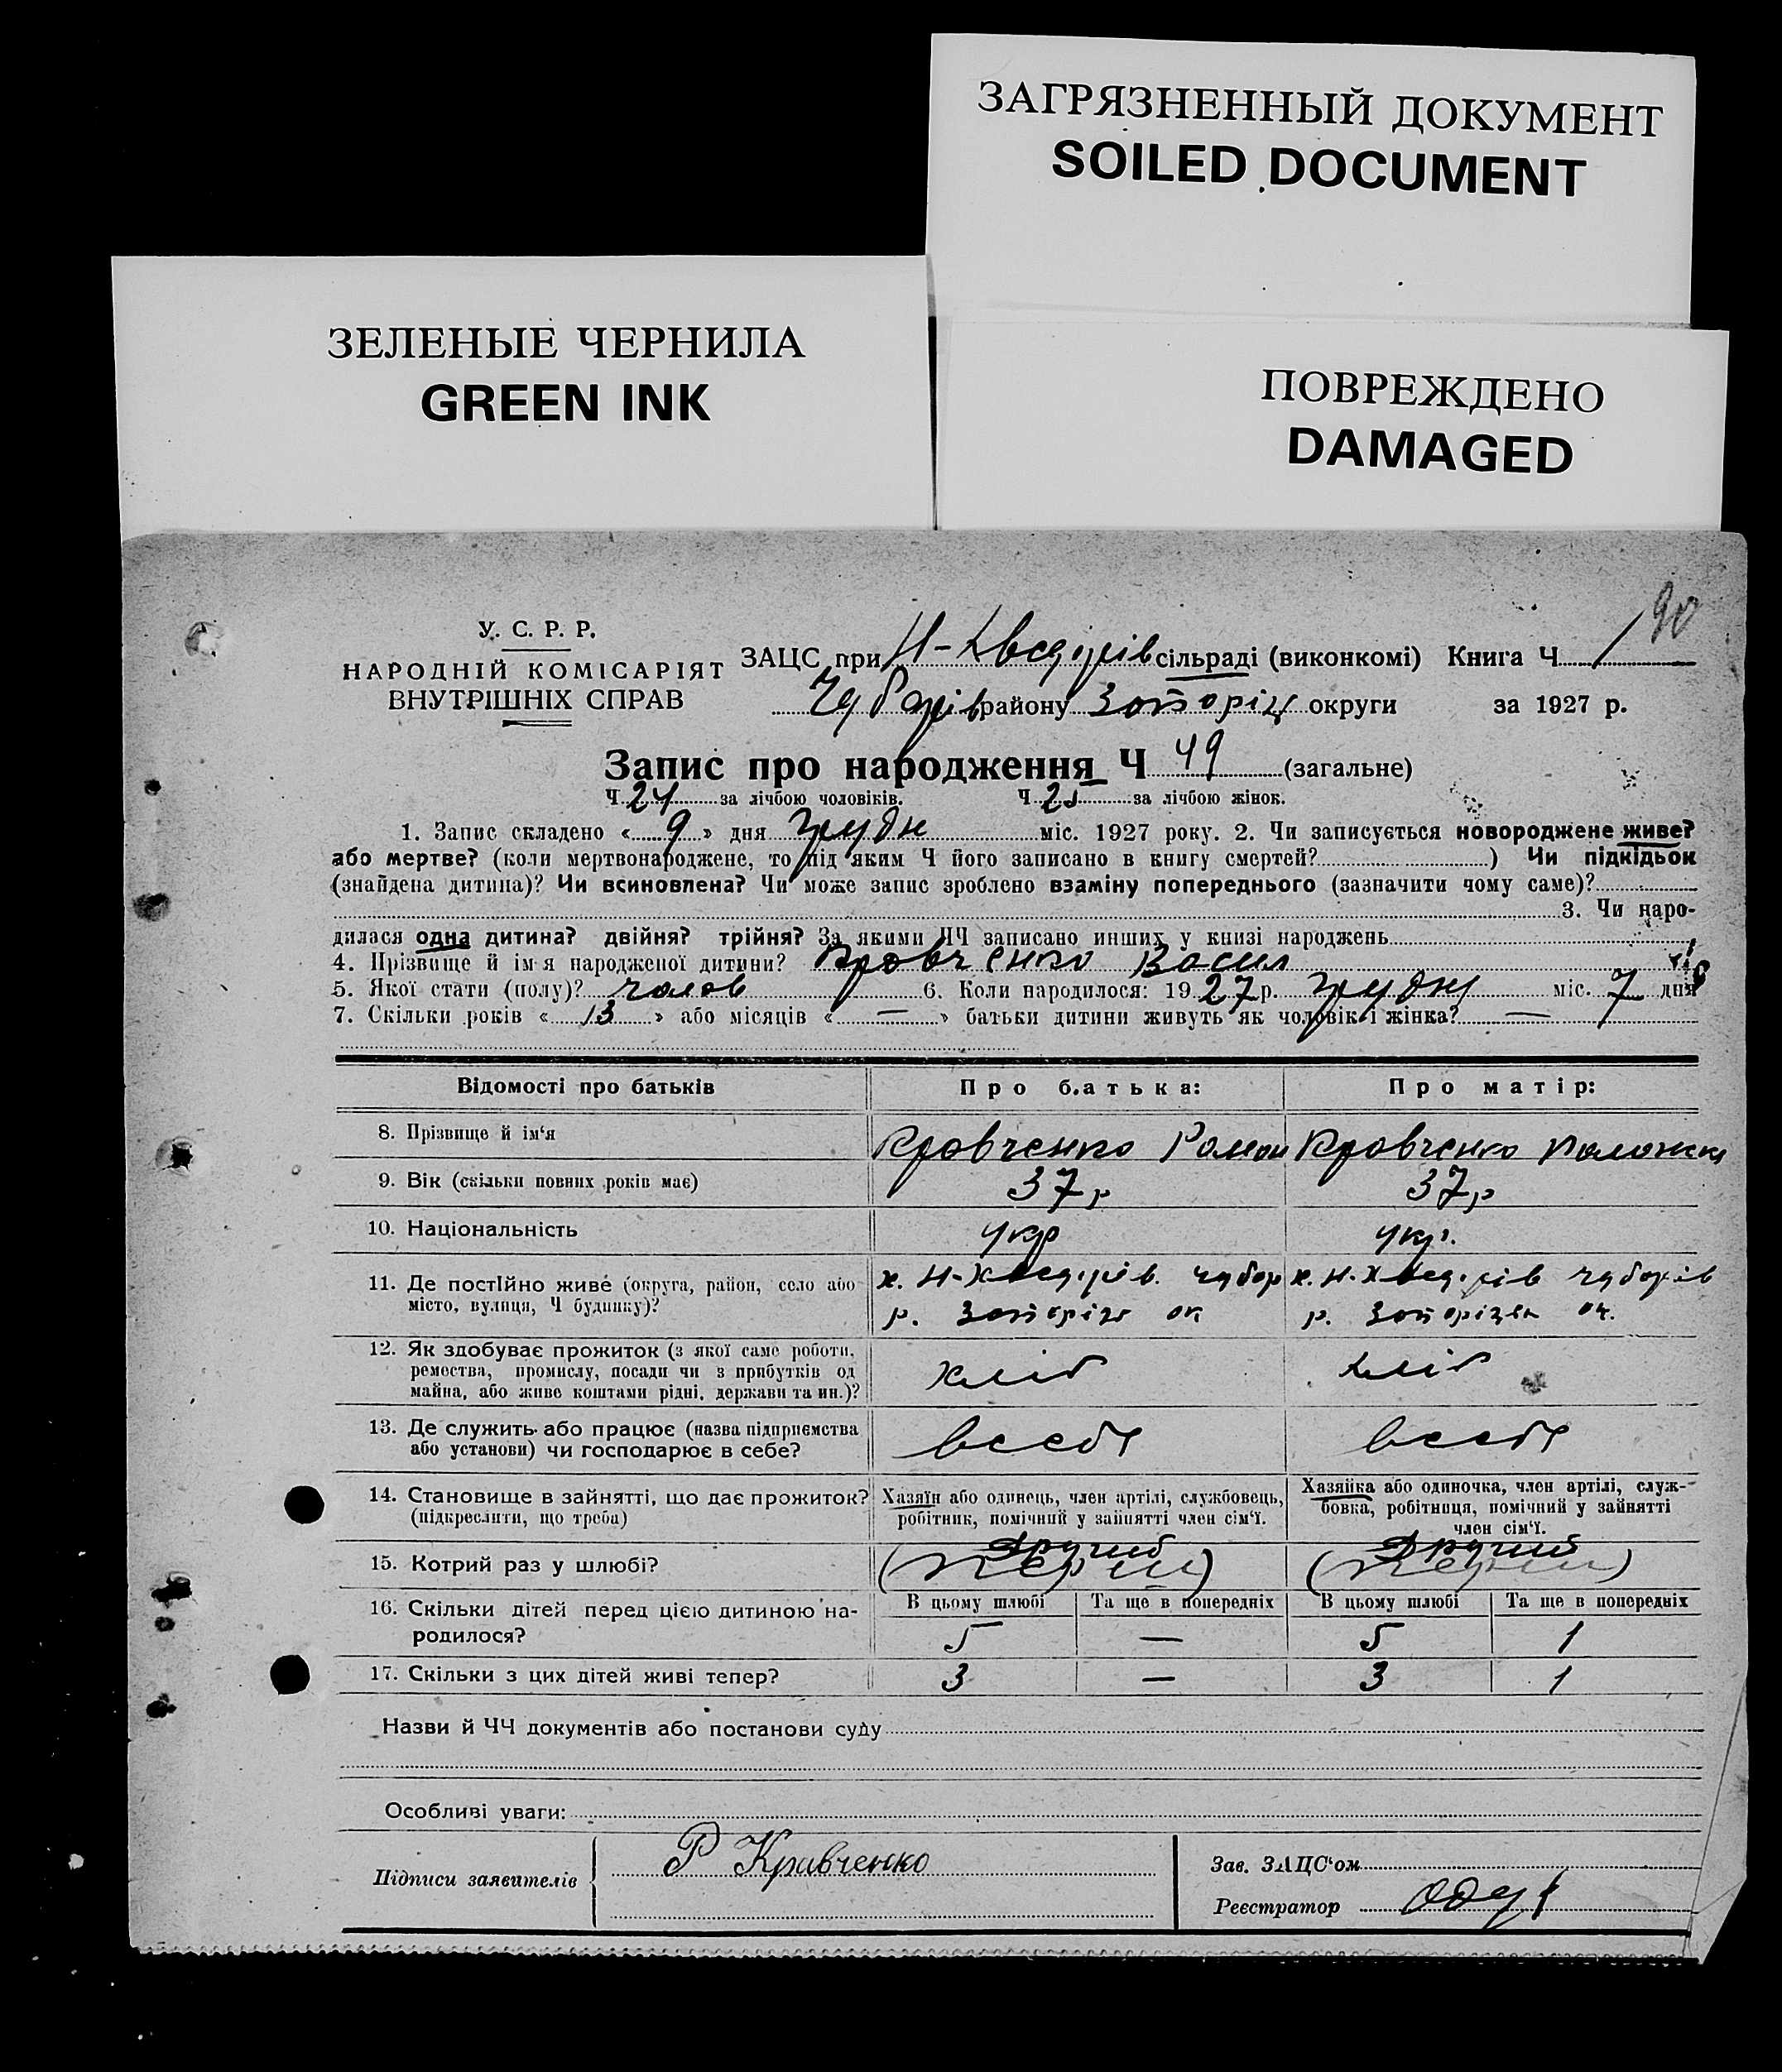 ЗАГРЯЗНЕННЫЙ ДОКУМЕНТ
SOILED DOCUMENT
ЗЕЛЕНЫЕ ЧЕРНИЛА
GREEN INK
ПОВРЕЖДЕНО
DAMAGED
90
У. С. Р. Р.
НАРОДНІЙ КОМІСАРІЯТ
ВНУТРІШНІХ СПРАВ
ЗАЦС при сільраді (виконкомі) Книга Ч 1
району округи за 1927 р.
Запис про народження Ч 49 (загальне)
Ч 24 за лічбою чоловіків. Ч 25 за лічбою жінок.
1. Запис складено « 9 » дня грудн міс. 1927 року. 2. Чи записується новороджене живе?
або мертве? (коли мертвонароджене, то під яким Ч його записано в книгу смертей? ) Чи підкідьок
(знайдена дитина)? Чи всиновлена? Чи може запис зроблено взаміну попереднього (зазначити чому саме)?
3. Чи наро-
дилася одна дитина? двійня? трійня? За якими ЧЧ записано инших у книзі народжень
4. Прізвище й ім'я народженої дитини? Кровченко Восил
5. Якої стати (полу)? чолов 6. Коли народилося: 1927 р. грудн міс. 7 дня
7. Скільки років « 13 » або місяців « — » батьки дитини живуть як чоловік і жінка? —
Відомості про батьків Про батька: Про матір:
8. Прізвище й ім'я Кровченко Ромон Кровченко
9. Вік (скільки повних років має) 37 р 37 р
10. Національність укр укр.
11. Де постійно живе (округа, район, село або
місто, вулиця, Ч будинку)?
12. Як здобуває прожиток (з якої саме роботи,
ремества, промислу, посади чи з прибутків од
майна, або живе коштами рідні, держави та ин.)? хліб хліб
13. Де служить або працює (назва підприємства
або установи) чи господарює в себе? всебе всебе
14. Становище в зайнятті, що дає прожиток?
(підкреслити, що треба)
Хазяїн або одинець, член артілі, службовець,
робітник, помічний у зайнятті член сім'ї.
Хазяйка або одиночка, член артілі, служ-
бовка, робітниця, помічний у зайнятті
член сім'ї.
15. Котрий раз у шлюбі? Другий
16. Скільки дітей перед цією дитиною на-
родилося?
В цьому шлюбі Та ще в попередніх В цьому шлюбі Та ще в попередніх
5 — 5 1
17. Скільки з цих дітей живі тепер? 3 — 3 1
Назви й ЧЧ документів або постанови суду
Особливі уваги:
Підписи заявителів Р Кравченко
Зав. ЗАЦС'ом
Реєстратор